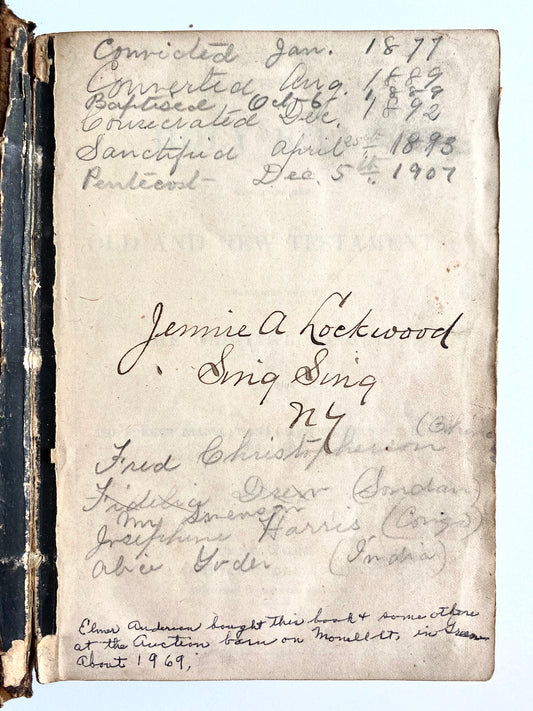 Convicted Jan. 1877
Converted Aug. 1889
Baptised Oct 6, 1889
Consecrated Dec. 1892
Sanctifiid April 25th 1893
Pentecost Dec. 5th, 1907
OLD AND NEW TESTAMENT
Jennie A Lockwood
Sing Sing
NY
Fred Christopherson
Fidelia Drew (Soudan)
Mr Swenson
Josephine Harris (Congo)
Alice Yoder (India)
Elmer Anderson bought this book & some others
at the Auction barn on Monell St. in
About 1969,